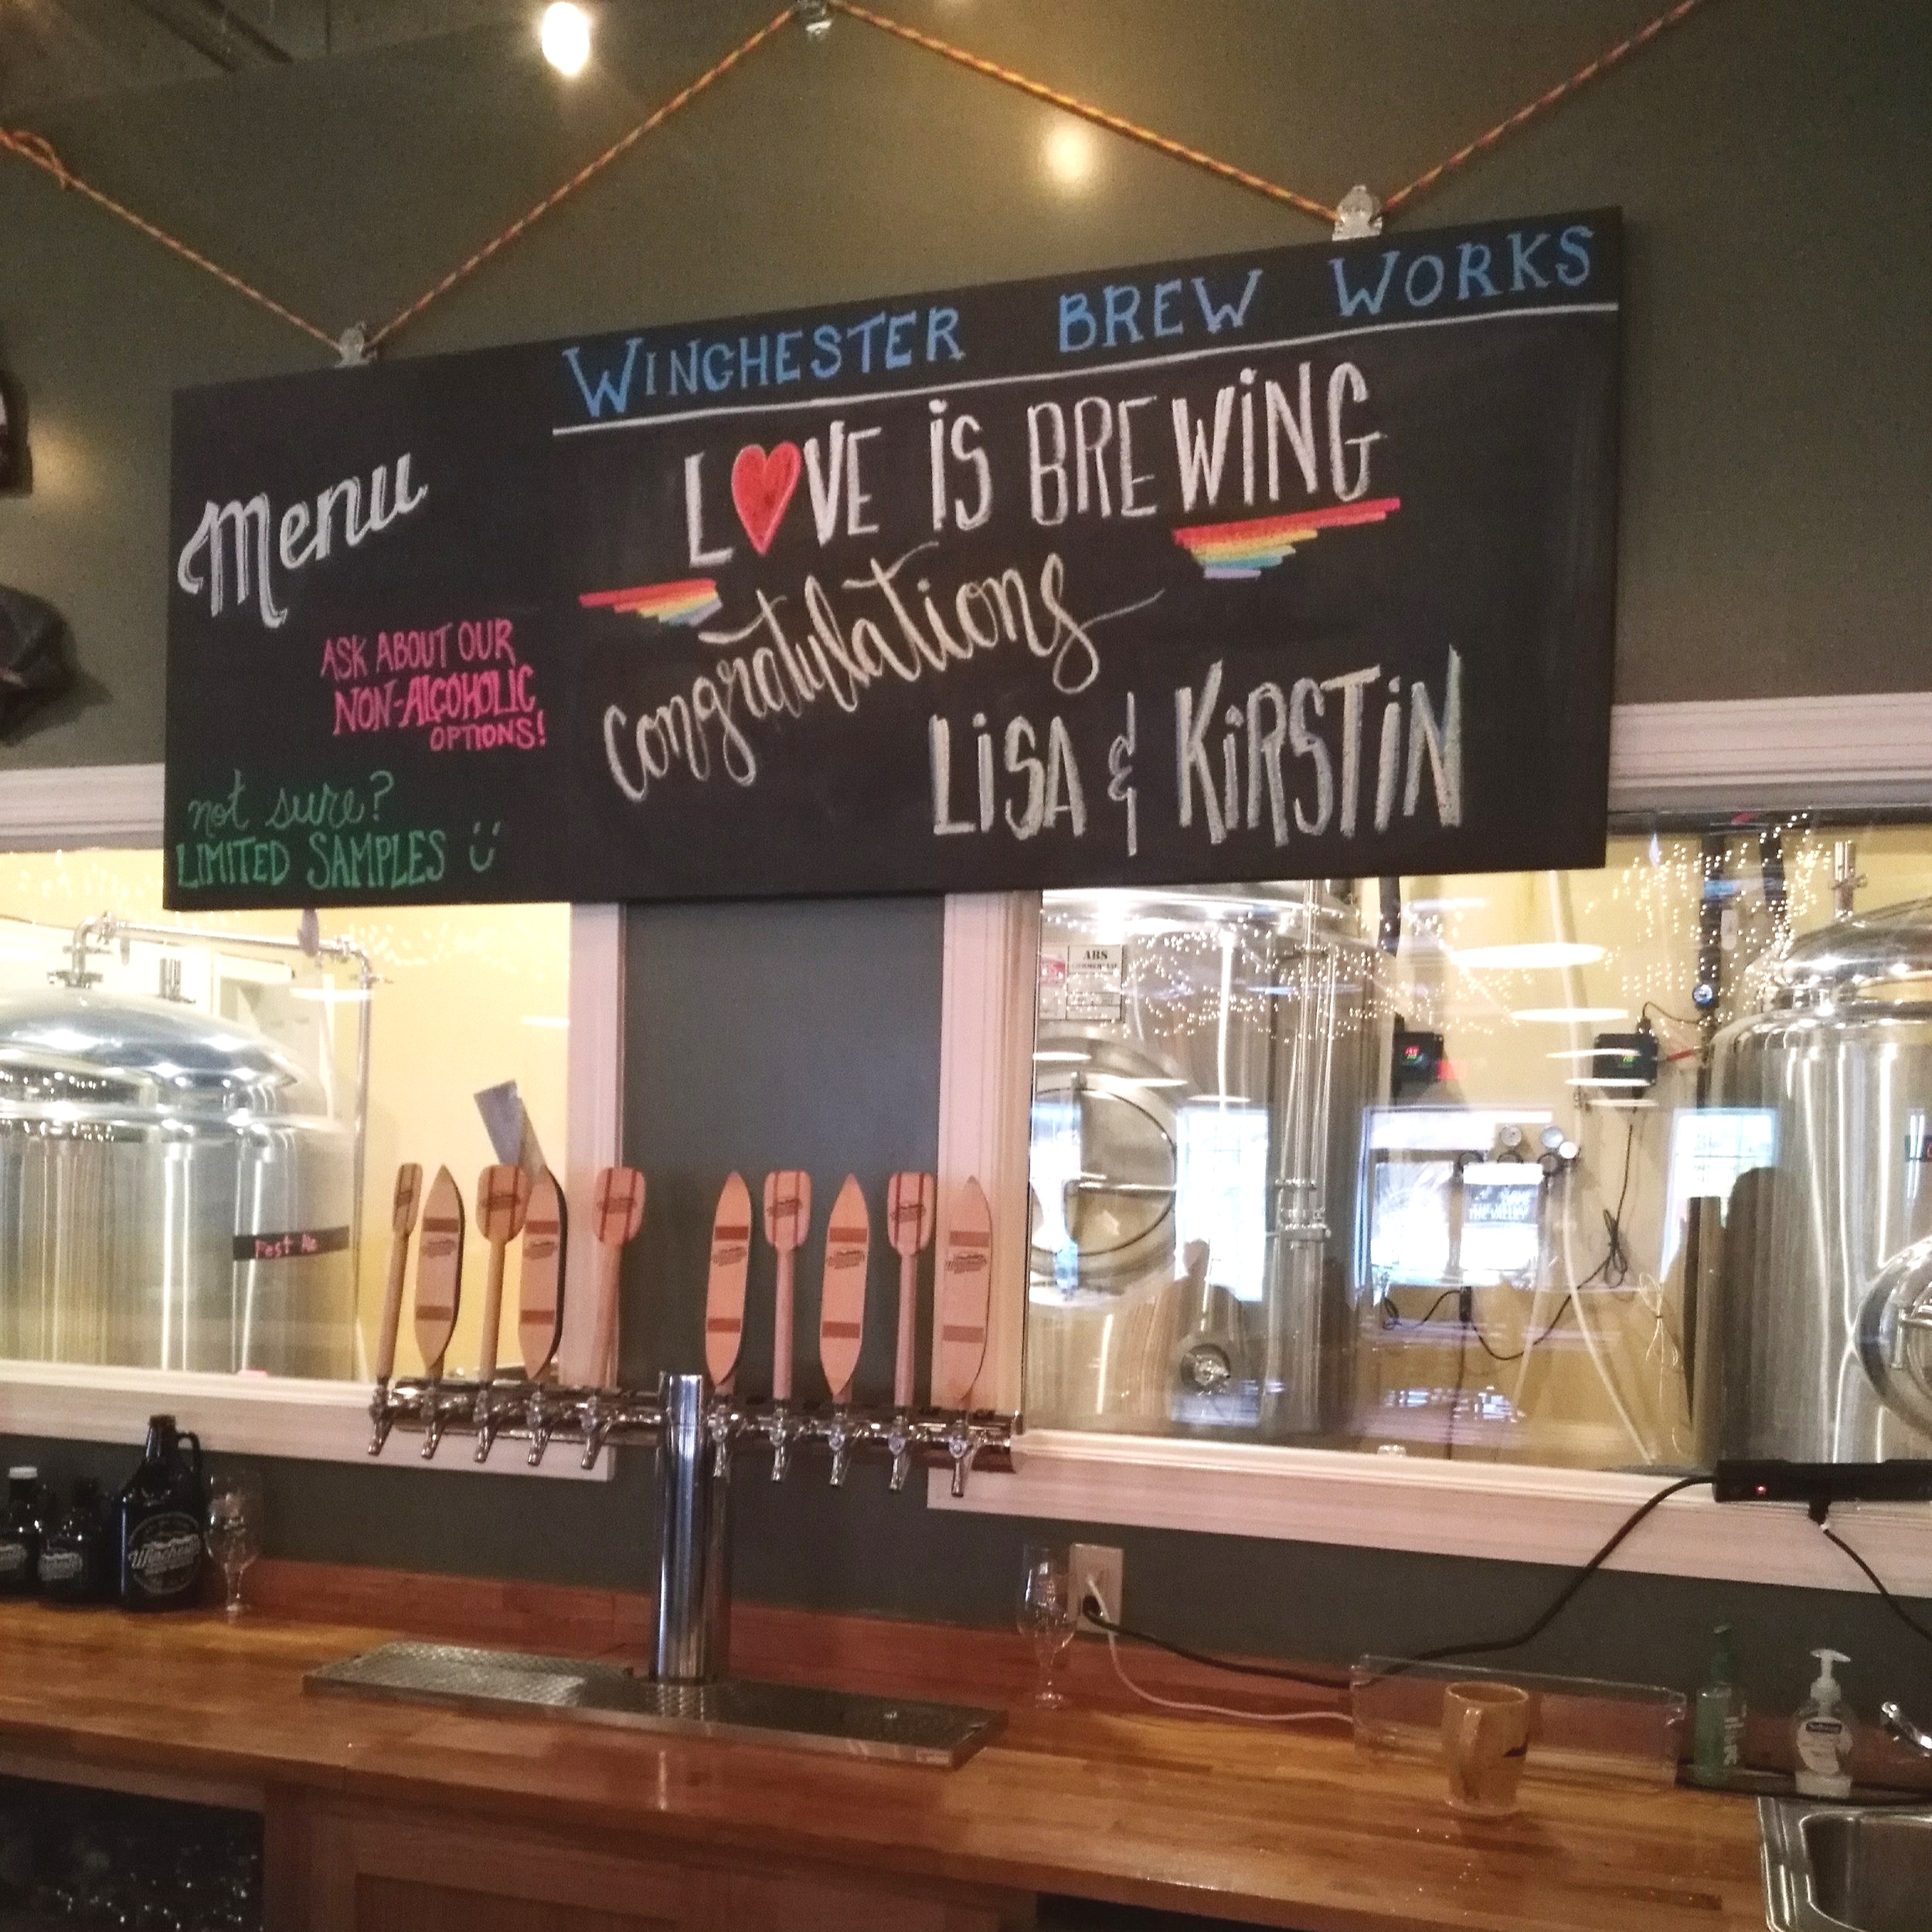 WINCHESTER BREW WORKS
Menu
LOVE IS BREWING
Congratulations
LISA & KIRSTIN
ASK ABOUT OUR
NON-ALCOHOLIC
OPTIONS!
not sure?
LIMITED SAMPLES
ABS
Fest Ale
Winchester